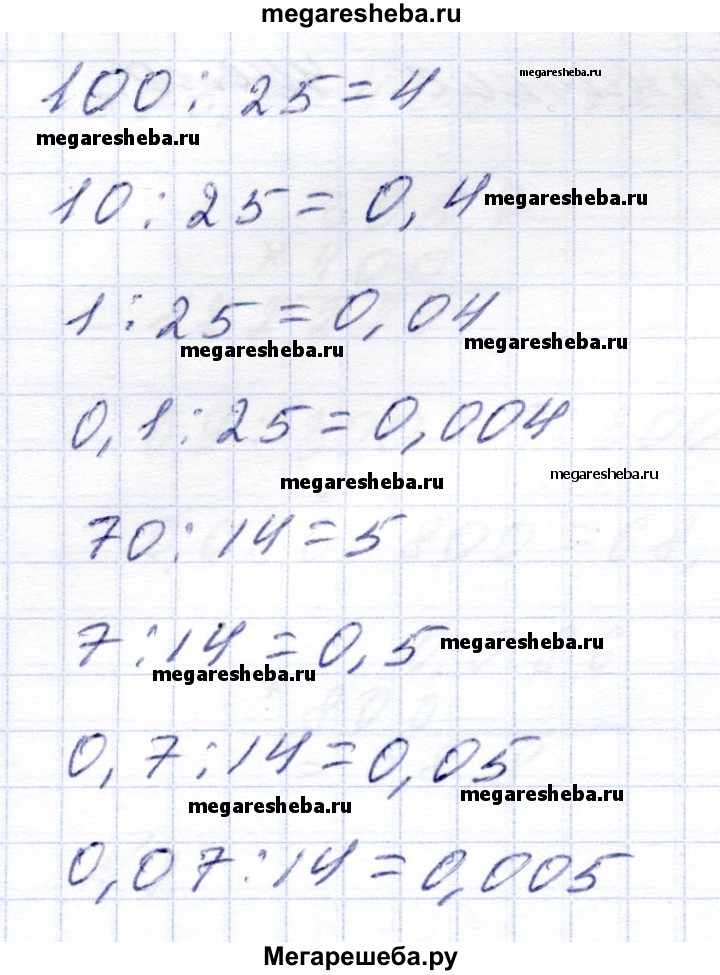 megaresheba.ru
100 : 25 = 4
megaresheba.ru
megaresheba.ru
10 : 25 = 0,4
megaresheba.ru
1 : 25 = 0,04
megaresheba.ru
megaresheba.ru
0,1 : 25 = 0,004
megaresheba.ru
megaresheba.ru
70 : 14 = 5
7 : 14 = 0,5
megaresheba.ru
megaresheba.ru
0,7 : 14 = 0,05
megaresheba.ru
megaresheba.ru
0,07 : 14 = 0,005
Мегарешеба.ру